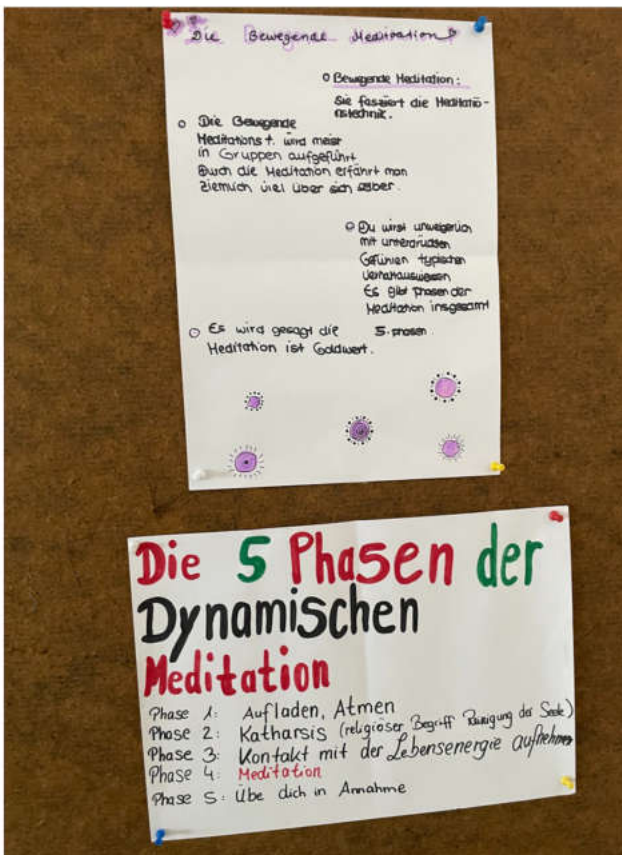 Die Bewegende Meditation
o Bewegende Meditation:
Sie fasziert die Meditatio-
nstechnik.
o Die Bewegende
Meditations t. wird meist
in Gruppen aufgeführt
Duch die Meditation erfährt man
ziemlich viel über sich selber.
o Du wirst unweigerlich
mit unterdrückten
Gefühlen typischen
Es gibt Phasen der
Meditation insgesamt
5. phasen.
o Es wird gesagt die
Meditation ist Goldwert.
Die 5 Phasen der
Dynamischen
Meditation
Phase 1: Aufladen, Atmen
Phase 2: Katharsis (religiöser Begriff Reinigung der Seele)
Phase 3: Kontakt mit der Lebensenergie aufnehmen
Phase 4: Meditation
Phase 5: Übe dich in Annahme